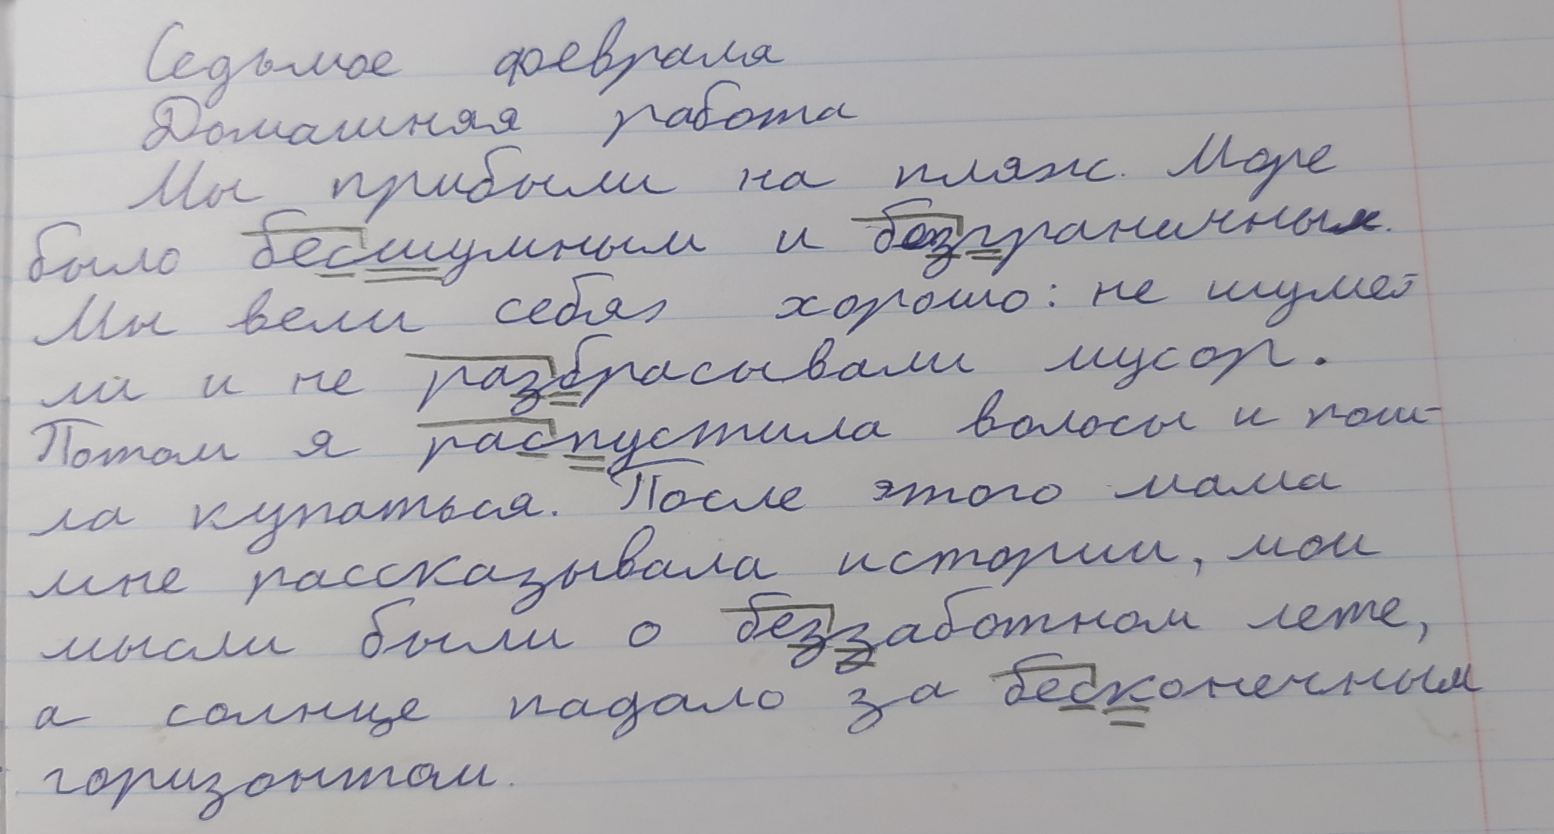 Седьмое февраля
Домашняя работа
Мы прибыли на пляж. Море
было бесшумным и безграничным.
Мы вели себя хорошо: не шуме-
ли и не разбрасывали мусор.
Потом я распустила волосы и пош-
ла купаться. После этого мама
мне рассказывала истории, мои
мысли были о беззаботном лете,
а солнце падало за бесконечным
горизонтом.